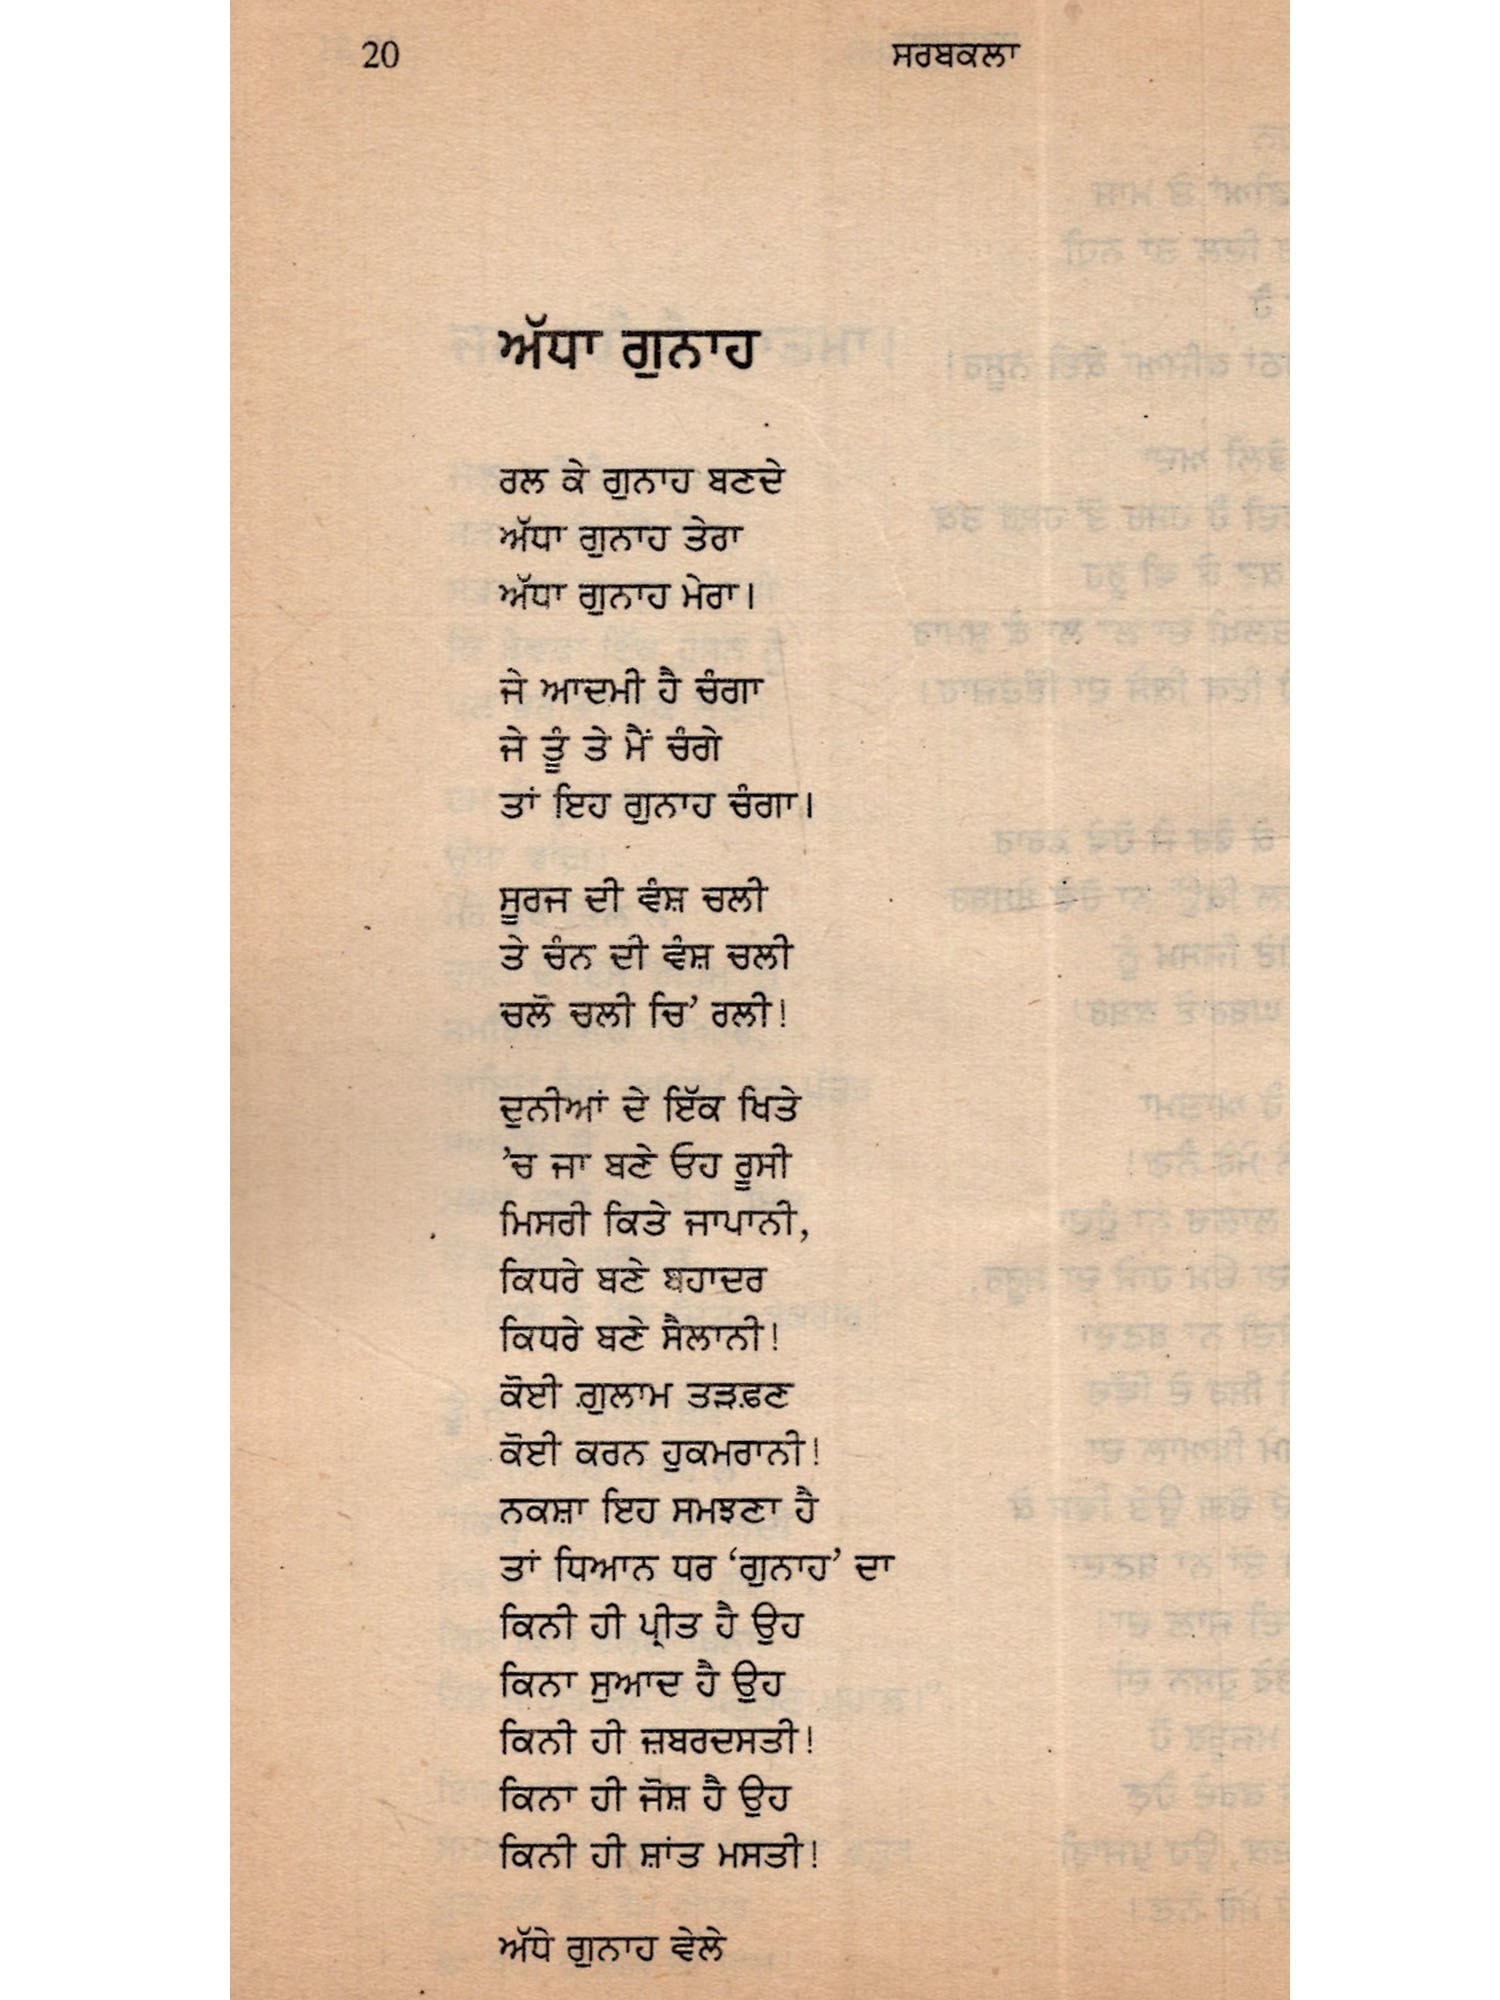 20
ਸਰਬਕਲਾ
ਅੱਧਾ ਗੁਨਾਹ
ਰਲ ਕੇ ਗੁਨਾਹ ਬਣਦੇ
ਅੱਧਾ ਗੁਨਾਹ ਤੇਰਾ
ਅੱਧਾ ਗੁਨਾਹ ਮੇਰਾ।
ਜੇ ਆਦਮੀ ਹੈ ਚੰਗਾ
ਜੇ ਤੂੰ ਤੇ ਮੈਂ ਚੰਗੇ
ਤਾਂ ਇਹ ਗੁਨਾਹ ਚੰਗਾ।
ਸੂਰਜ ਦੀ ਵੰਸ਼ ਚਲੀ
ਤੇ ਚੰਨ ਦੀ ਵੰਸ਼ ਚਲੀ
ਚਲੋ ਚਲੀ ਚਿ' ਰਲੀ!
ਦੁਨੀਆਂ ਦੇ ਇੱਕ ਖਿਤੇ
'ਚ ਜਾ ਬਣੇ ਓਹ ਰੂਸੀ
ਮਿਸਰੀ ਕਿਤੇ ਜਾਪਾਨੀ,
ਕਿਧਰੇ ਬਣੇ ਬਹਾਦਰ
ਕਿਧਰੇ ਬਣੇ ਸੈਲਾਨੀ!
ਕੋਈ ਗ਼ੁਲਾਮ ਤੜਫ਼ਣ
ਕੋਈ ਕਰਨ ਹੁਕਮਰਾਨੀ!
ਨਕਸ਼ਾ ਇਹ ਸਮਝਣਾ ਹੈ
ਤਾਂ ਧਿਆਨ ਧਰ 'ਗੁਨਾਹ' ਦਾ
ਕਿਨੀ ਹੀ ਪ੍ਰੀਤ ਹੈ ਉਹ
ਕਿਨਾ ਸੁਆਦ ਹੈ ਉਹ
ਕਿਨੀ ਹੀ ਜ਼ਬਰਦਸਤੀ!
ਕਿਨਾ ਹੀ ਜੋਸ਼ ਹੈ ਉਹ
ਕਿਨੀ ਹੀ ਸ਼ਾਂਤ ਮਸਤੀ!
ਅੱਧੇ ਗੁਨਾਹ ਵੇਲੇ